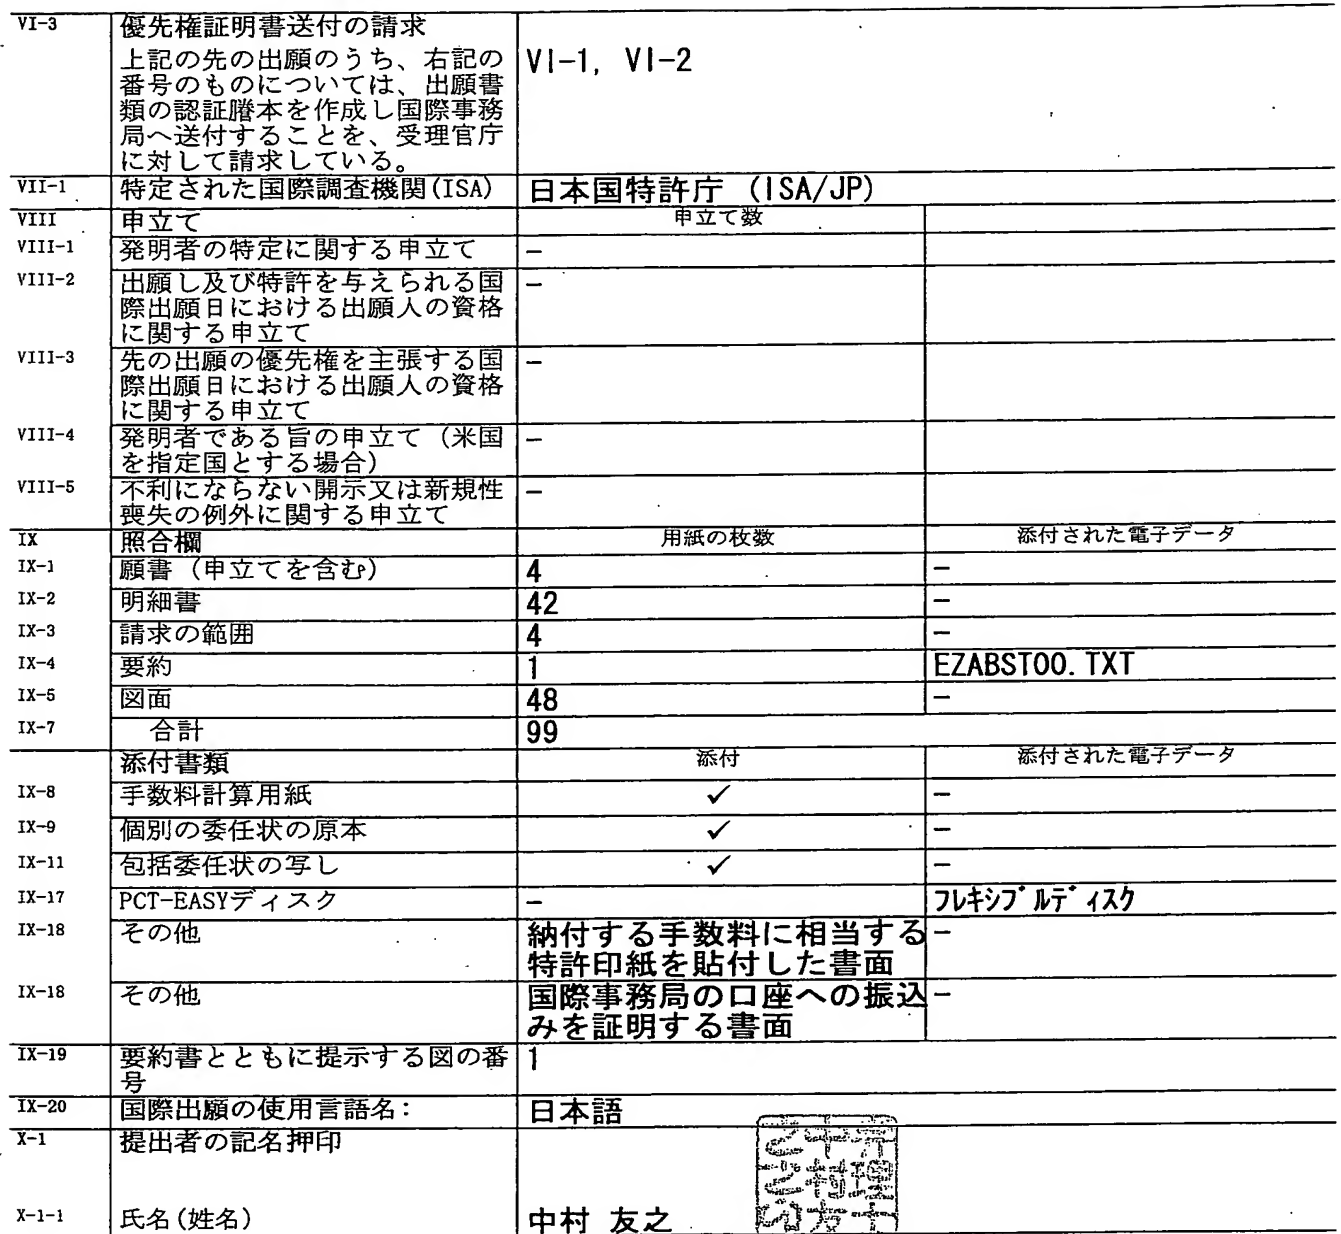 VI-3 優先権証明書送付の請求
上記の先の出願のうち、右記の VI-1, VI-2
番号のものについては、出願書
類の認証謄本を作成し国際事務
局へ送付することを、受理官庁
に対して請求している。
VII-1 特定された国際調査機関(ISA) 日本国特許庁 (ISA/JP)
VIII 申立て 申立て数
VIII-1 発明者の特定に関する申立て -
VIII-2 出願し及び特許を与えられる国 -
際出願日における出願人の資格
に関する申立て
VIII-3 先の出願の優先権を主張する国 -
際出願日における出願人の資格
に関する申立て
VIII-4 発明者である旨の申立て (米国 -
を指定国とする場合)
VIII-5 不利にならない開示又は新規性 -
喪失の例外に関する申立て
IX 照合欄 用紙の枚数 添付された電子データ
IX-1 願書 (申立てを含む) 4 -
IX-2 明細書 42 -
IX-3 請求の範囲 4 -
IX-4 要約 1 EZABST00.TXT
IX-5 図面 48 -
IX-7 合計 99
添付書類 添付 添付された電子データ
IX-8 手数料計算用紙 ✓ -
IX-9 個別の委任状の原本 ✓ -
IX-11 包括委任状の写し ✓ -
IX-17 PCT-EASYディスク - フレキシブルディスク
IX-18 その他 納付する手数料に相当する -
特許印紙を貼付した書面
IX-18 その他 国際事務局の口座への振込 -
みを証明する書面
IX-19 要約書とともに提示する図の番 1
号
IX-20 国際出願の使用言語名: 日本語
X-1 提出者の記名押印
X-1-1 氏名(姓名) 中村 友之